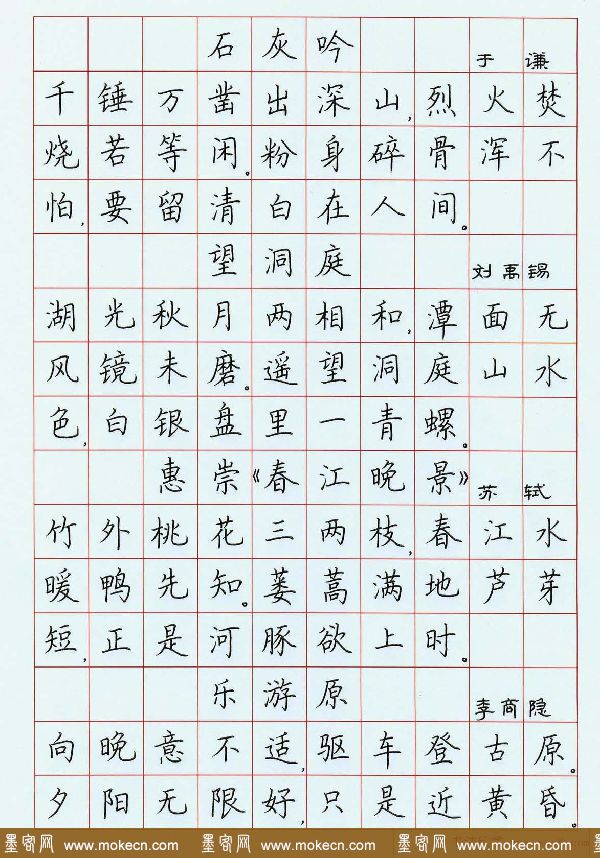 石灰吟 于谦
千锤万凿出深山,烈火焚
烧若等闲。粉身碎骨浑不
怕,要留清白在人间。
望洞庭 刘禹锡
湖光秋月两相和,潭面无
风镜未磨。遥望洞庭山水
色,白银盘里一青螺。
惠崇《春江晚景》苏轼
竹外桃花三两枝,春江水
暖鸭先知。蒌蒿满地芦芽
短,正是河豚欲上时。
乐游原 李商隐
向晚意不适,驱车登古原。
夕阳无限好,只是近黄昏。
墨客网 www.mokecn.com 墨客网 www.mokecn.com 墨客网 www.mokecn.com